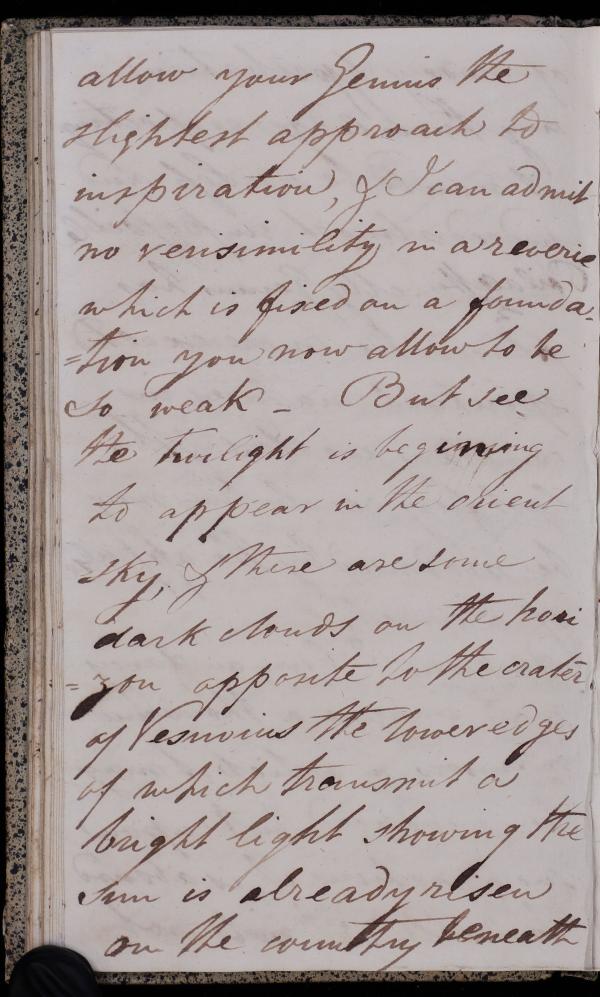 allow your Genius the
slightest approach to
inspiration, & I can admit
no verisimility in a reverie
which is fixed on a founda-
=tion you now allow to be
so weak - But see
the twilight is beginning
to appear in the orient
sky, & there are some
dark clouds on the hori
=zon opposite to the crater
of Vesuvius the lower edges
of which transmit a
bright light showing the
sun is already risen
on the country beneath